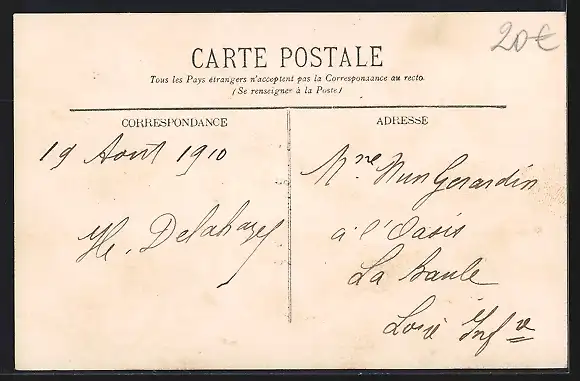 20€
CARTE POSTALE
Tous les Pays étrangers n'acceptent pas la Correspondance au recto
(Se renseigner à la Poste)
CORRESPONDANCE
ADRESSE
19 Aout 1910
Delahaye
Gerardin
à l'Oasis
La Baule
Loire Infre